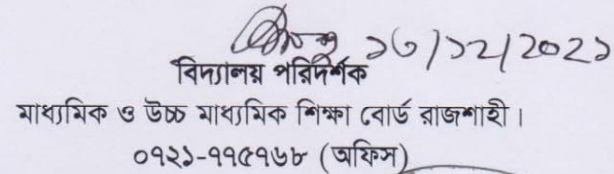 ১৩/১২/২০২১
বিদ্যালয় পরিদর্শক
মাধ্যমিক ও উচ্চ মাধ্যমিক শিক্ষা বোর্ড রাজশাহী।
০৭২১-৭৭৫৭৬৮ (অফিস)